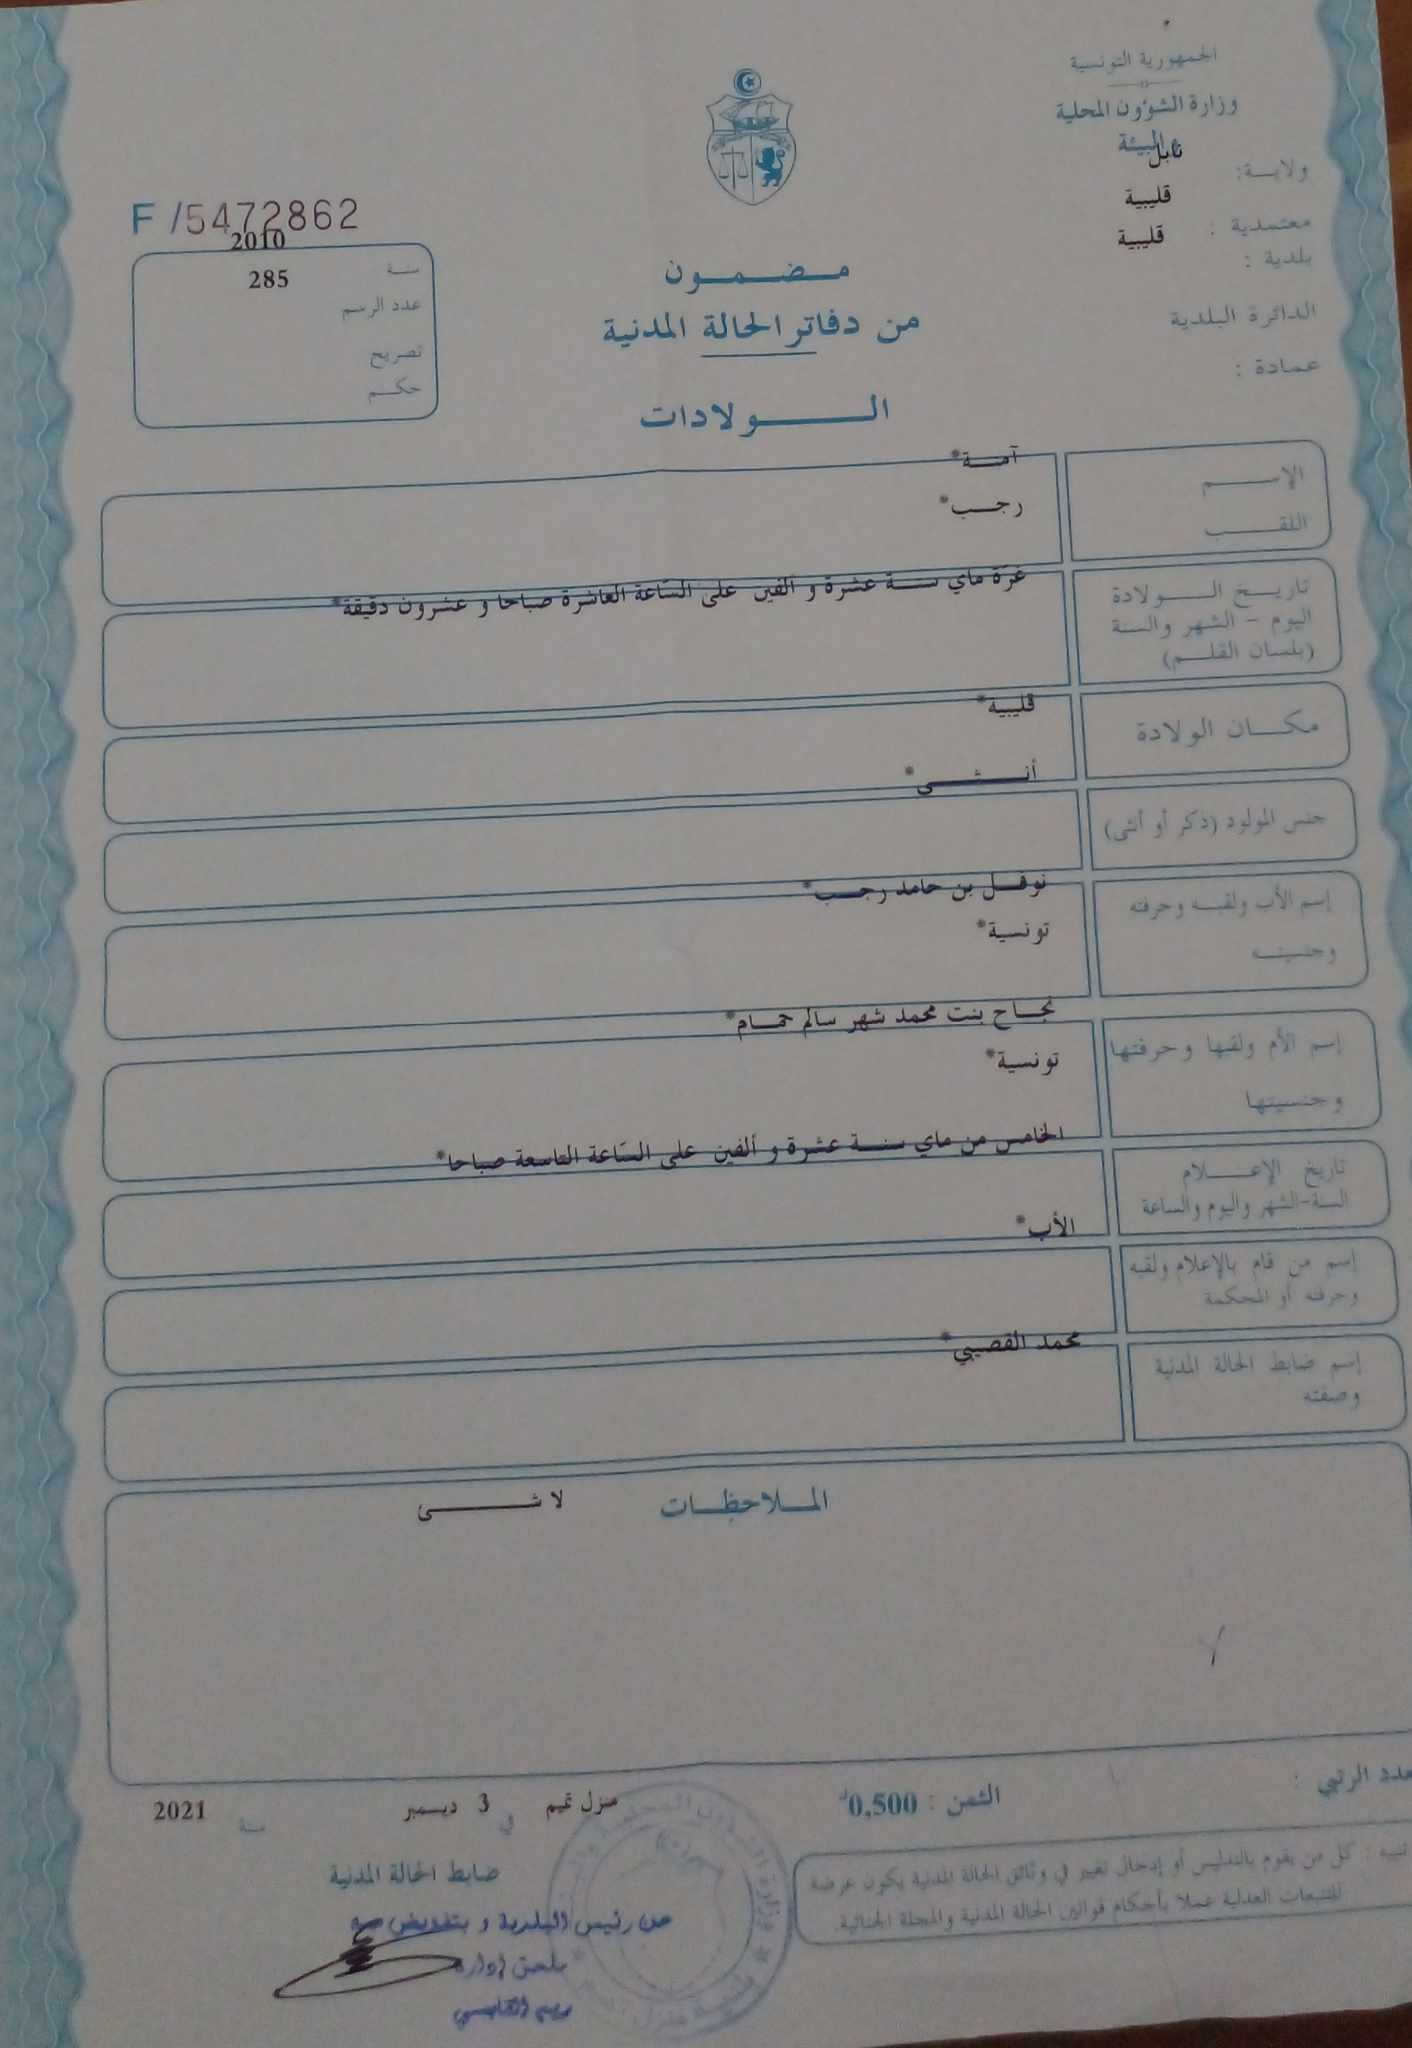 الجمهورية التونسية
وزارة الشؤون المحلية
و البيئة
ولاية: نابل
معتمدية : قليبية
بلدية : قليبية
الدائرة البلدية
عمادة :
F /5472862
سنة 2010
عدد الرسم 285
تصريح
حكم
مضمون
من دفاتر الحالة المدنية
الولادات
الإسم آمنة*
اللقب رجب*
تاريخ الولادة
اليوم - الشهر والسنة
(بلسان القلم)
غرّة ماي سنة عشرة و ألفين على السّاعة العاشرة صباحا و عشرون دقيقة*
مكان الولادة قليبية*
جنس المولود (ذكر أو أنثى) أنثى*
إسم الأب ولقبه وحرفته نوفل بن حامد رجب*
وجنسيته تونسية*
إسم الأم ولقبها وحرفتها نجاح بنت محمد شهر سالم حمام*
وجنسيتها تونسية*
تاريخ الإعلام
السنة-الشهر واليوم والساعة
الخامس من ماي سنة عشرة و ألفين على السّاعة التاسعة صباحا*
إسم من قام بالإعلام ولقبه
وحرفته أو المحكمة
الأب*
إسم ضابط الحالة المدنية
وصفته
محمد القصيبي*
الملاحظات لا شئ
عدد الرتبي :
الثمن : 0,500د
منزل تميم في 3 ديسمبر سنة 2021
تنبيه : كل من يقوم بالتدليس أو إدخال تغيير في وثائق الحالة المدنية يكون عرضة
للتتبعات العدلية عملا بأحكام قوانين الحالة المدنية والمجلة الجنائية.
ضابط الحالة المدنية
عن رئيس البلدية و بتفويض منه
ملحق إدارة